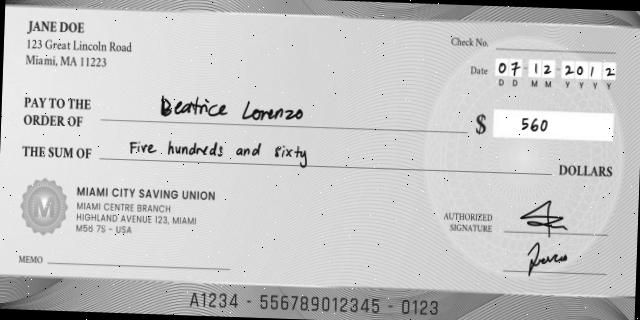 JANE DOE
123 Great Lincoln Road
Miami, MA 11223
Check No.
Date 07-12-2012
D D M M Y Y Y Y
PAY TO THE
ORDER OF Beatrice Lorenzo $ 560
THE SUM OF Five hundreds and sixty DOLLARS
MIAMI CITY SAVING UNION
MIAMI CENTRE BRANCH
HIGHLAND AVENUE 123, MIAMI
M56 7S - USA
M
AUTHORIZED
SIGNATURE
MEMO
A1234 - 556789012345 - 0123